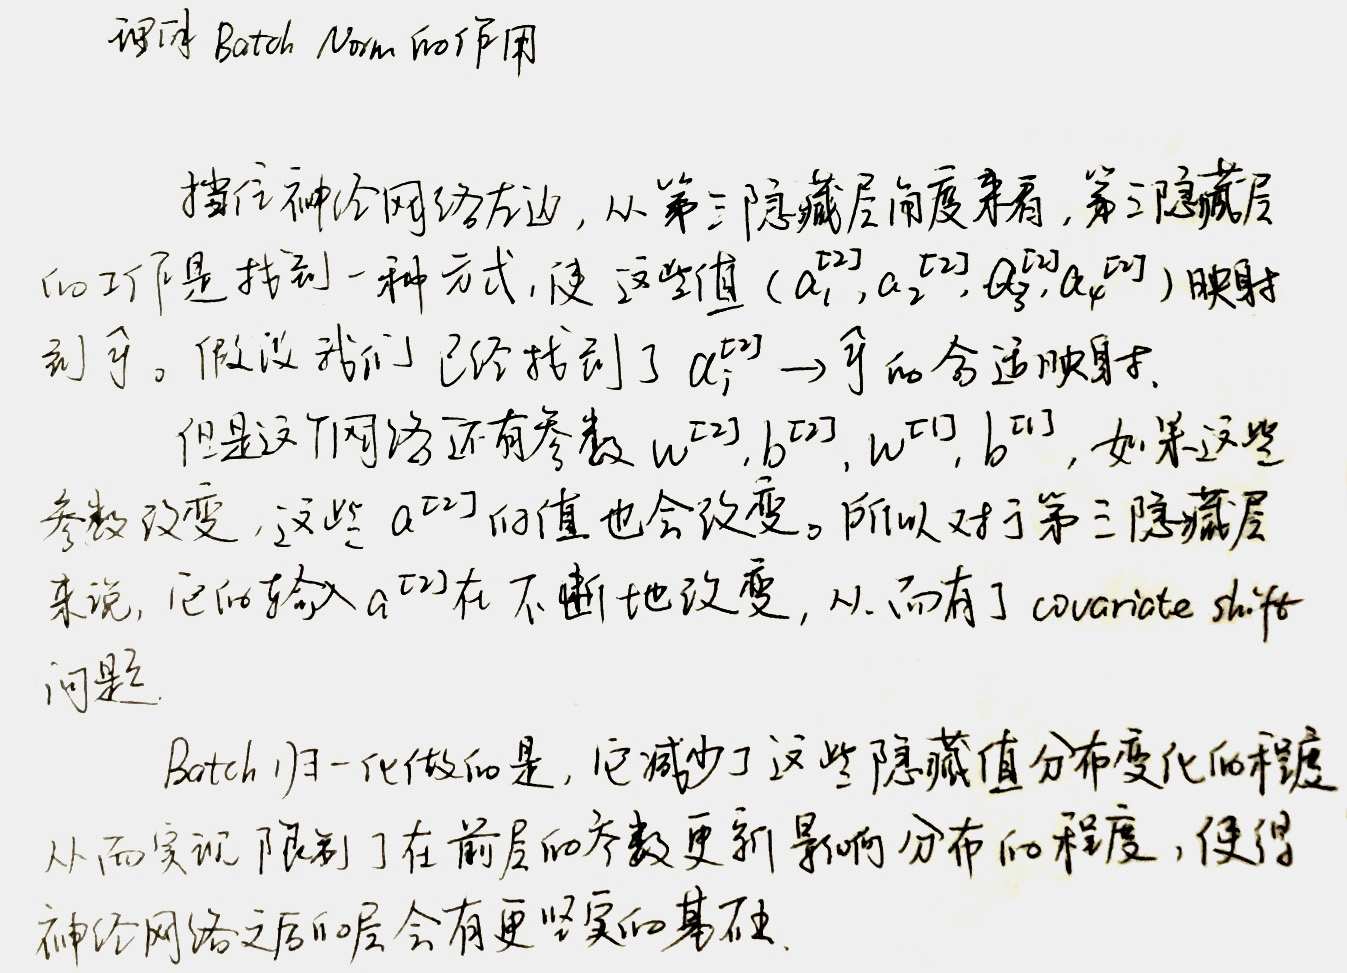 理解 Batch Norm 的作用
挡住神经网络左边,从第三隐藏层角度来看,第三隐藏层
的工作是找到一种方式,使这些值(a₁^[2],a₂^[2],a₃^[2],a₄^[2])映射
到ŷ。假设我们已经找到了 aᵢ^[2]→ŷ的合适映射.
但是这个网络还有参数 w^[2],b^[2],w^[1],b^[1],如果这些
参数改变,这些 a^[2] 的值也会改变。所以对于第三隐藏层
来说,它的输入a^[2]在不断地改变,从而有了 covariate shift
问题.
Batch 归一化做的是,它减少了这些隐藏值分布变化的程度
从而实现限制了在前层的参数更新影响分布的程度,使得
神经网络之后的层会有更坚实的基础.